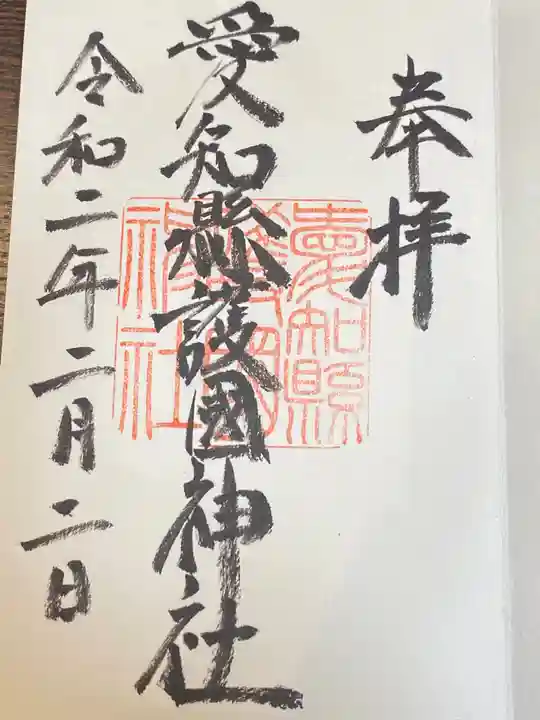 奉拝
愛知縣護國神社
愛知縣
護國
神社
令和二年二月二日